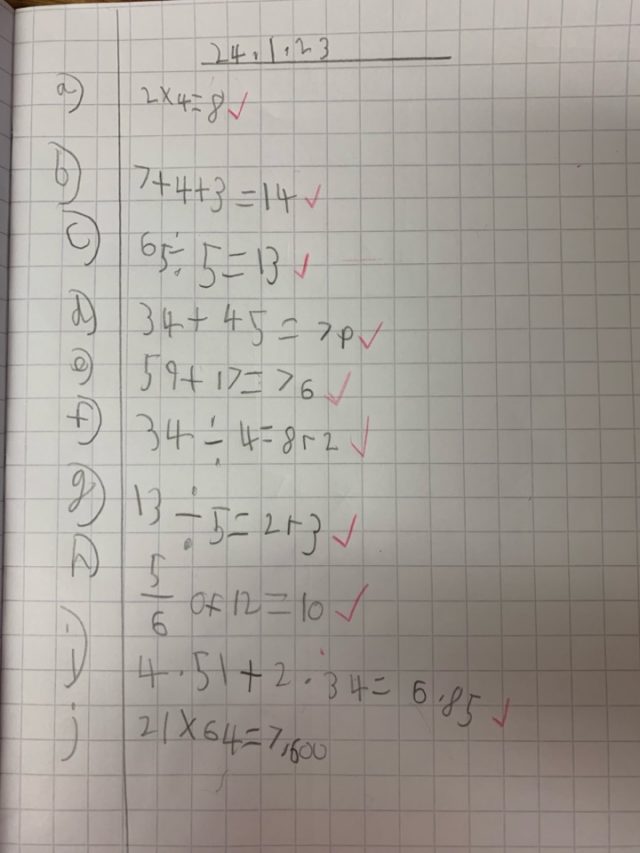 24.1.23
a) 2×4=8
b) 7+4+3=14
c) 65÷5=13
d) 34+45=79
e) 59+17=76
f) 34÷4=8r2
g) 13÷5=2r3
h) 5/6 of 12=10
i) 4.51+2.34=6.85
j) 21×64=7,600